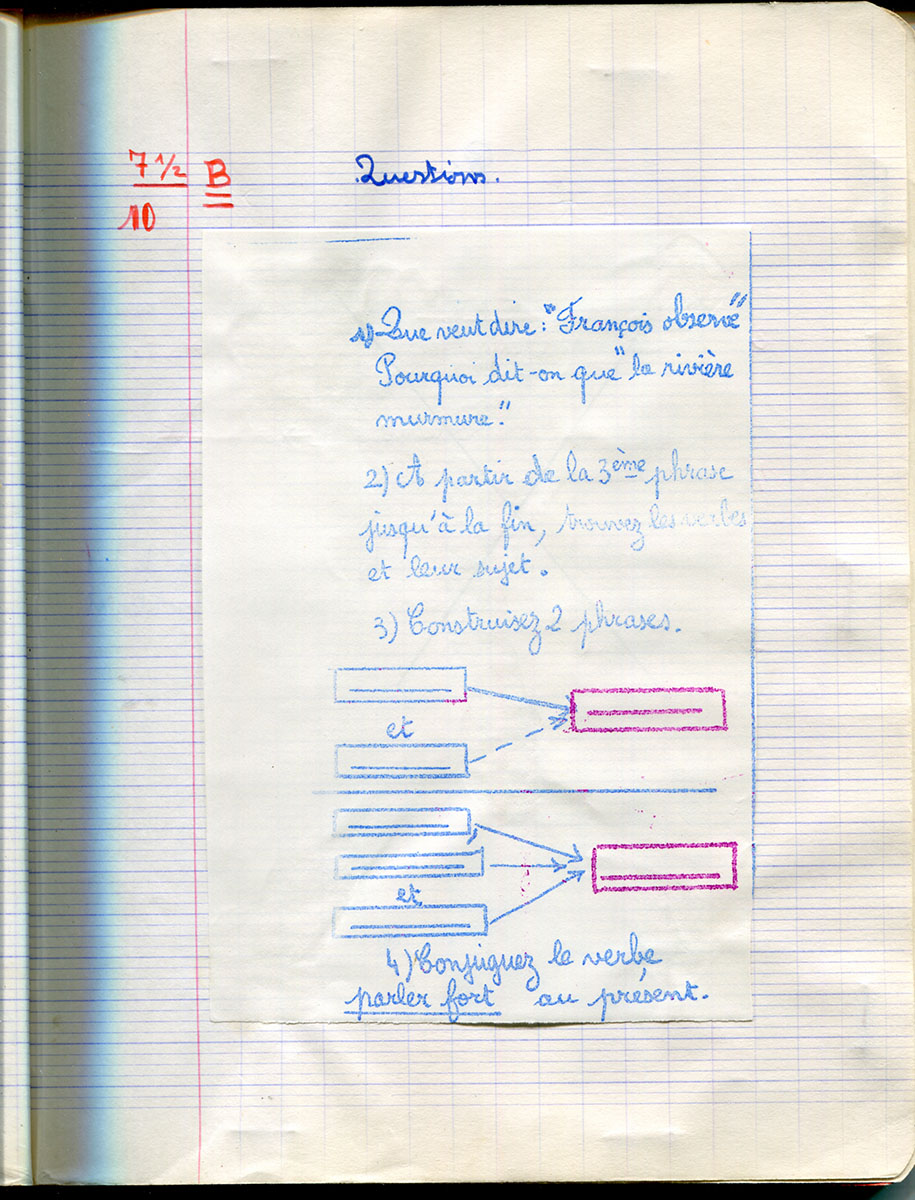 7 1/2 B Questions.
10
1) Que veut dire : "François observe"
Pourquoi dit-on que "la rivière
murmure."
2) A partir de la 3ème phrase
jusqu'à la fin, trouvez les verbes
et leur sujet.
3) Construisez 2 phrases.
et
et
4) Conjuguez le verbe
parler fort au présent.